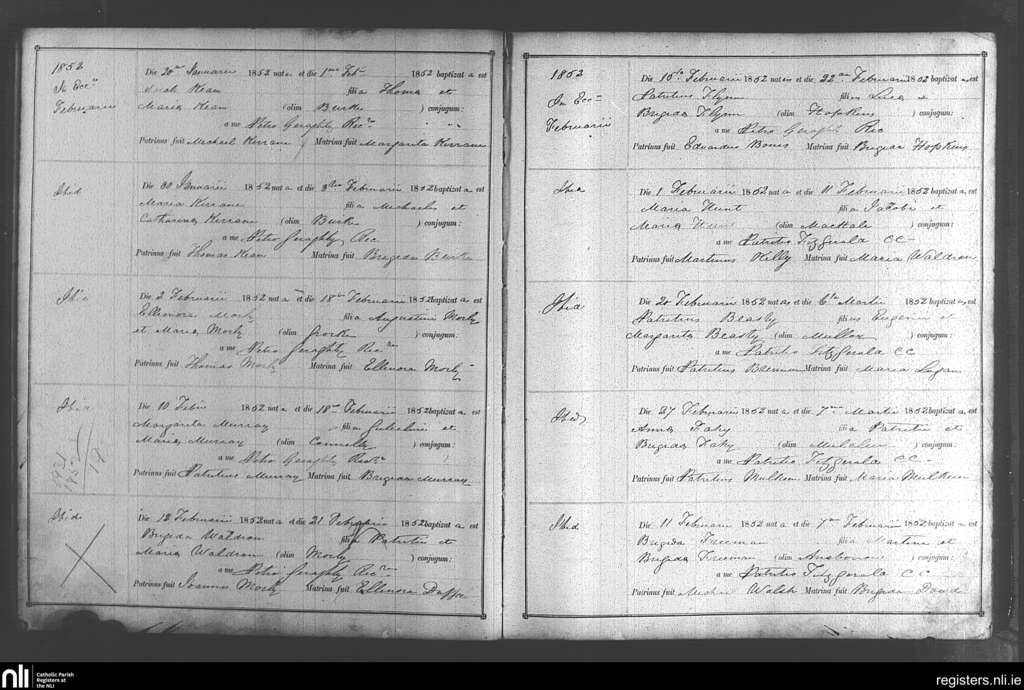 1852
In Ecc
Februarii
Die 20 Januarii 1852 nat a et die 1 Feb 1852 baptizat a est
Kean filia Thoma et
Maria Kean (olim Burke ) conjugum:
a me Petro Geraghty Rec
Patrinus fuit Michael Kirrane Matrina fuit Margarita Kirrane
Ibid
Die 30 Januarii 1852 nat a et die Februarii 1852 baptizat a est
Maria Kirrane filia Michaelis et
Catharina Kirrane (olim Burk ) conjugum:
a me Petro Geraghty Rec
Patrinus fuit Thomas Kean Matrina fuit Brigida Burke
Ibid
Die 2 Februarii 1852 nat a et die 18 Februarii 1852 baptizat a est
Ellenora Morly filia Augustini Morly
et Maria Morly (olim ) conjugum:
a me Petro Geraghty Rec
Patrinus fuit Thomas Morly Matrina fuit Ellenora Morly
Ibid
Die 10 Febr 1852 nat a et die 18 Februarii 1852 baptizat a est
Margarita Murray filia Gulielmi et
Maria Murray (olim Connelly ) conjugum:
a me Petro Geraghty Rec
Patrinus fuit Patritius Murray Matrina fuit Brigida Murray
Ibid
Die 12 Februarii 1852 nat a et die 21 Februarii 1852 baptizat a est
Brigida Waldron filia Patritii et
Maria Waldron (olim Morly ) conjugum:
a me Petro Geraghty Rec
Patrinus fuit Joannes Morly Matrina fuit Ellenora Duffee
1852
In Ecc
Februarii
Die 15 Februarii 1852 nat us et die 22 Februarii 1852 baptizat us est
Patritius Flynn filius Luca et
Brigida Flynn (olim Hopkins ) conjugum:
a me Petro Geraghty Rec
Patrinus fuit Edvardus Matrina fuit Brigida Hopkins
Ibid
Die 1 Februarii 1852 nat a et die 11 Februarii 1852 baptizat a est
Maria Hunt filia Jacobi et
Maria Hunt (olim MacHale ) conjugum:
a me Patritio Fitzgerald CC
Patrinus fuit Martinus Kelly Matrina fuit Maria Waldron
Ibid
Die 20 Februarii 1852 nat us et die 6 Martii 1852 baptizat us est
Patritius Beasty filius Eugenii et
Margarita Beasty (olim ) conjugum:
a me Patritio Fitzgerald CC
Patrinus fuit Patritius Matrina fuit Maria
Ibid
Die 27 Februarii 1852 nat a et die 7 Martii 1852 baptizat a est
Anna Fahy filia Patritii et
Brigida Fahy (olim ) conjugum:
a me Patritio Fitzgerald CC
Patrinus fuit Patritius Mulkeen Matrina fuit Maria Mulkeen
Ibid
Die 11 Februarii 1852 nat a et die 7 Februarii 1852 baptizat a est
Brigida Freeman filia Martini et
Brigida Freeman (olim ) conjugum:
a me Patritio Fitzgerald CC
Patrinus fuit Walsh Matrina fuit Brigida
nli Catholic Parish
Registers at
the NLI
registers.nli.ie